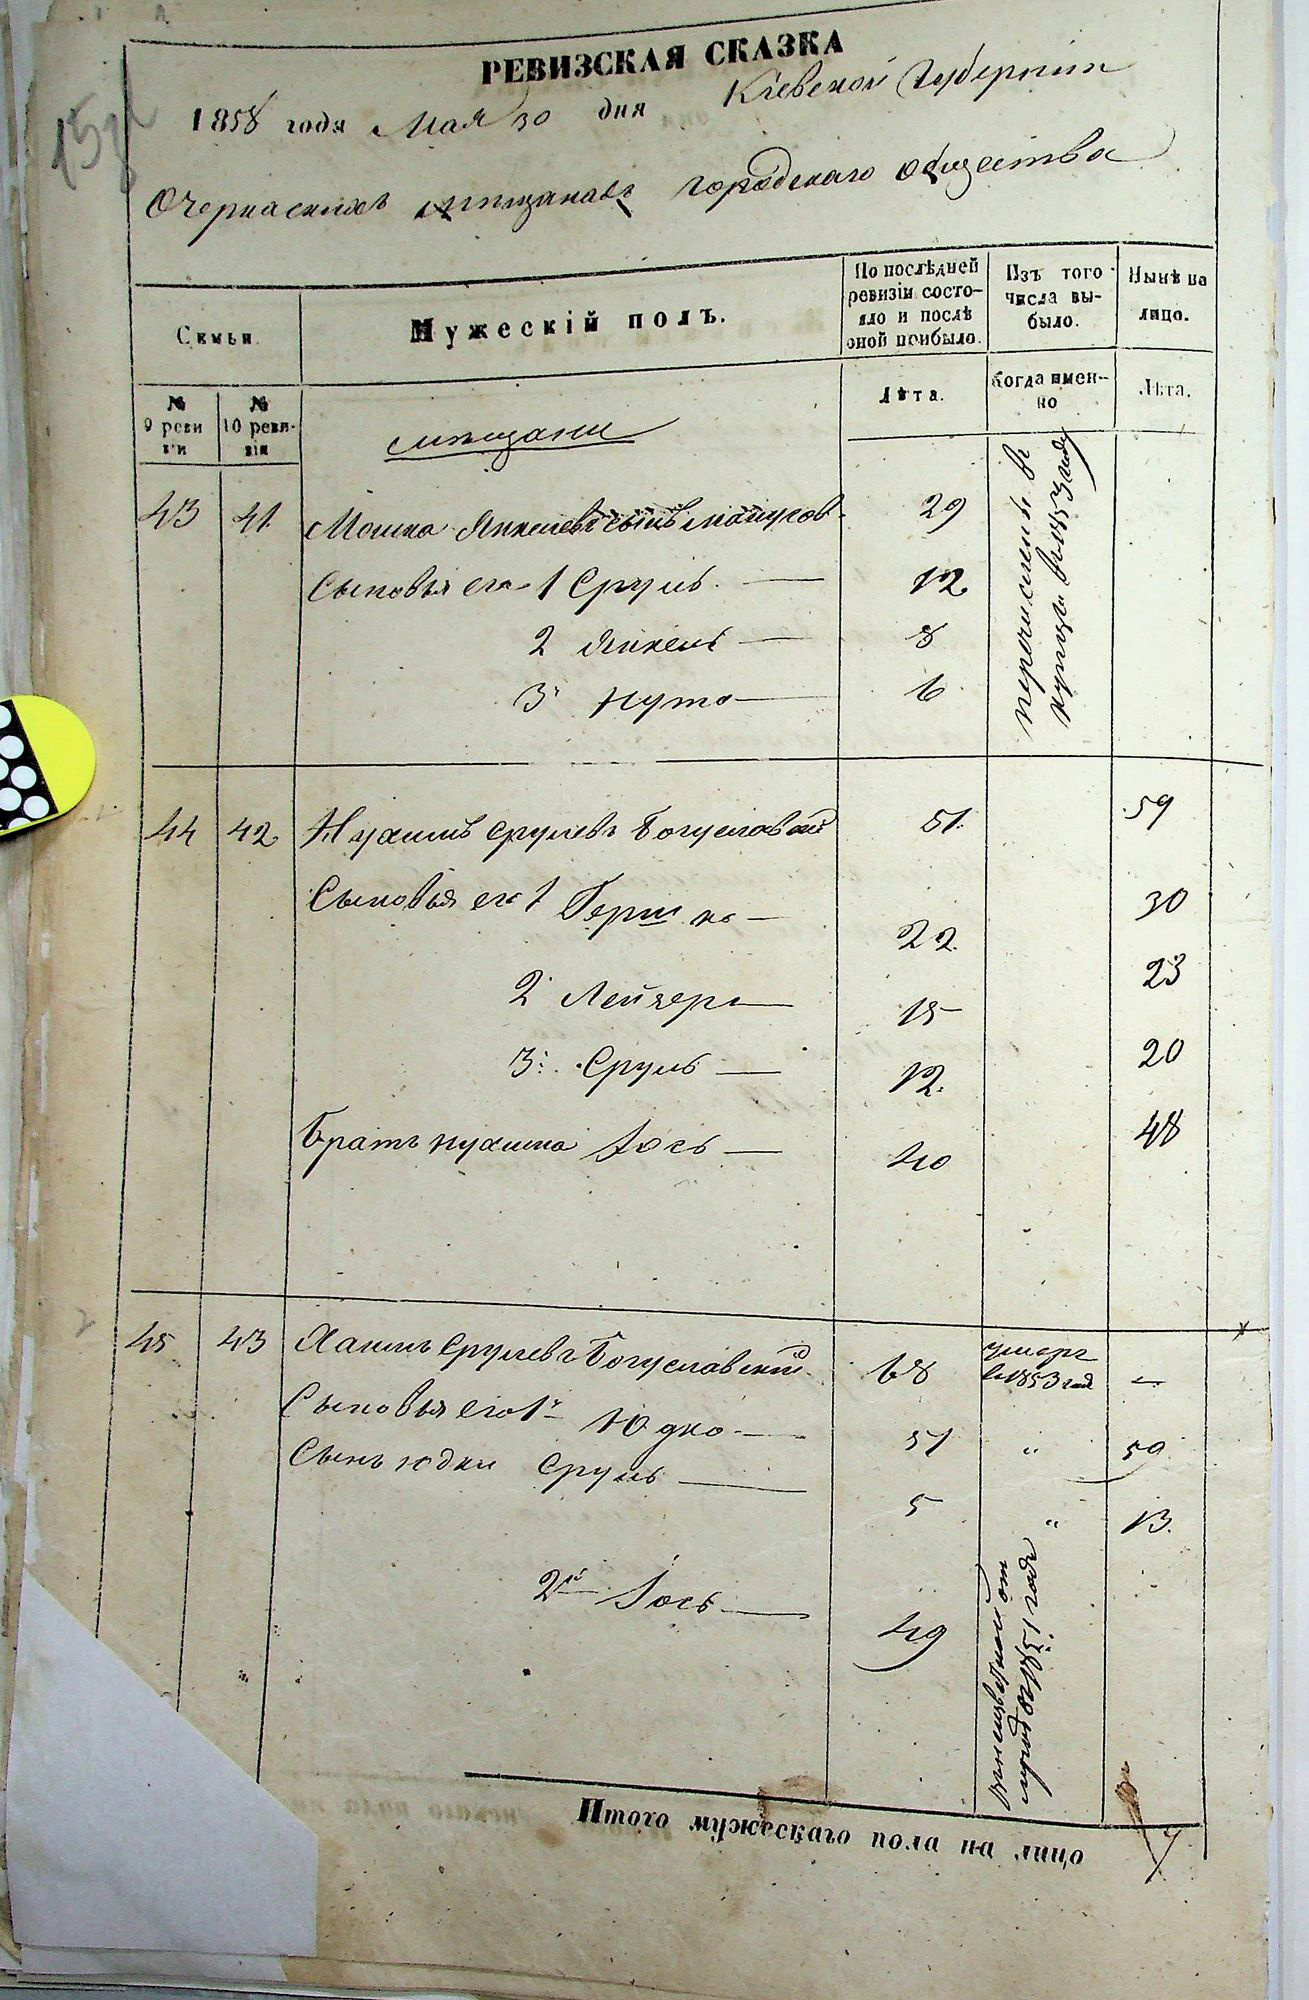 РЕВИЗСКАЯ СКАЗКА
1858 года Мая 30 дня Кіевской Губерніи
О Черкаскихъ мѣщанахъ городскаго общества
Семьи.
Мужескій полъ.
По послѣдней ревизіи состо-
яло и послѣ
оной прибыло.
Изъ того
числа вы-
было.
Нынѣ на
лицо.
№
9 реви
зіи
№
10 реви-
зіи
Лѣта.
Когда имен-
но
Лѣта.
мѣщани
43 41. Мошко Янкелевъ сынъ 29
Сыновья его 1 Сруль. — 12
2 Янкель — 8
3 Нута — 6
перечисленъ въ
купцы въ 1853 году
44 42 Нухимъ Срулевъ Богуславский 51. 59
Сыновья его 1 Гершко — 22. 30
2 Лейзеръ — 15 23
3. Сруль — 12. 20
Братъ Нухима Іось — 40 48
45 43 Хаимъ Срулевъ Богуславский 68 умеръ
въ 1853 год —
Сыновья его 1й Юдко — 51 " 59
Сынъ Юдки Сруль — 5 " 13.
2й Іось — 49
1851 года
Итого мужескаго пола на лицо 7